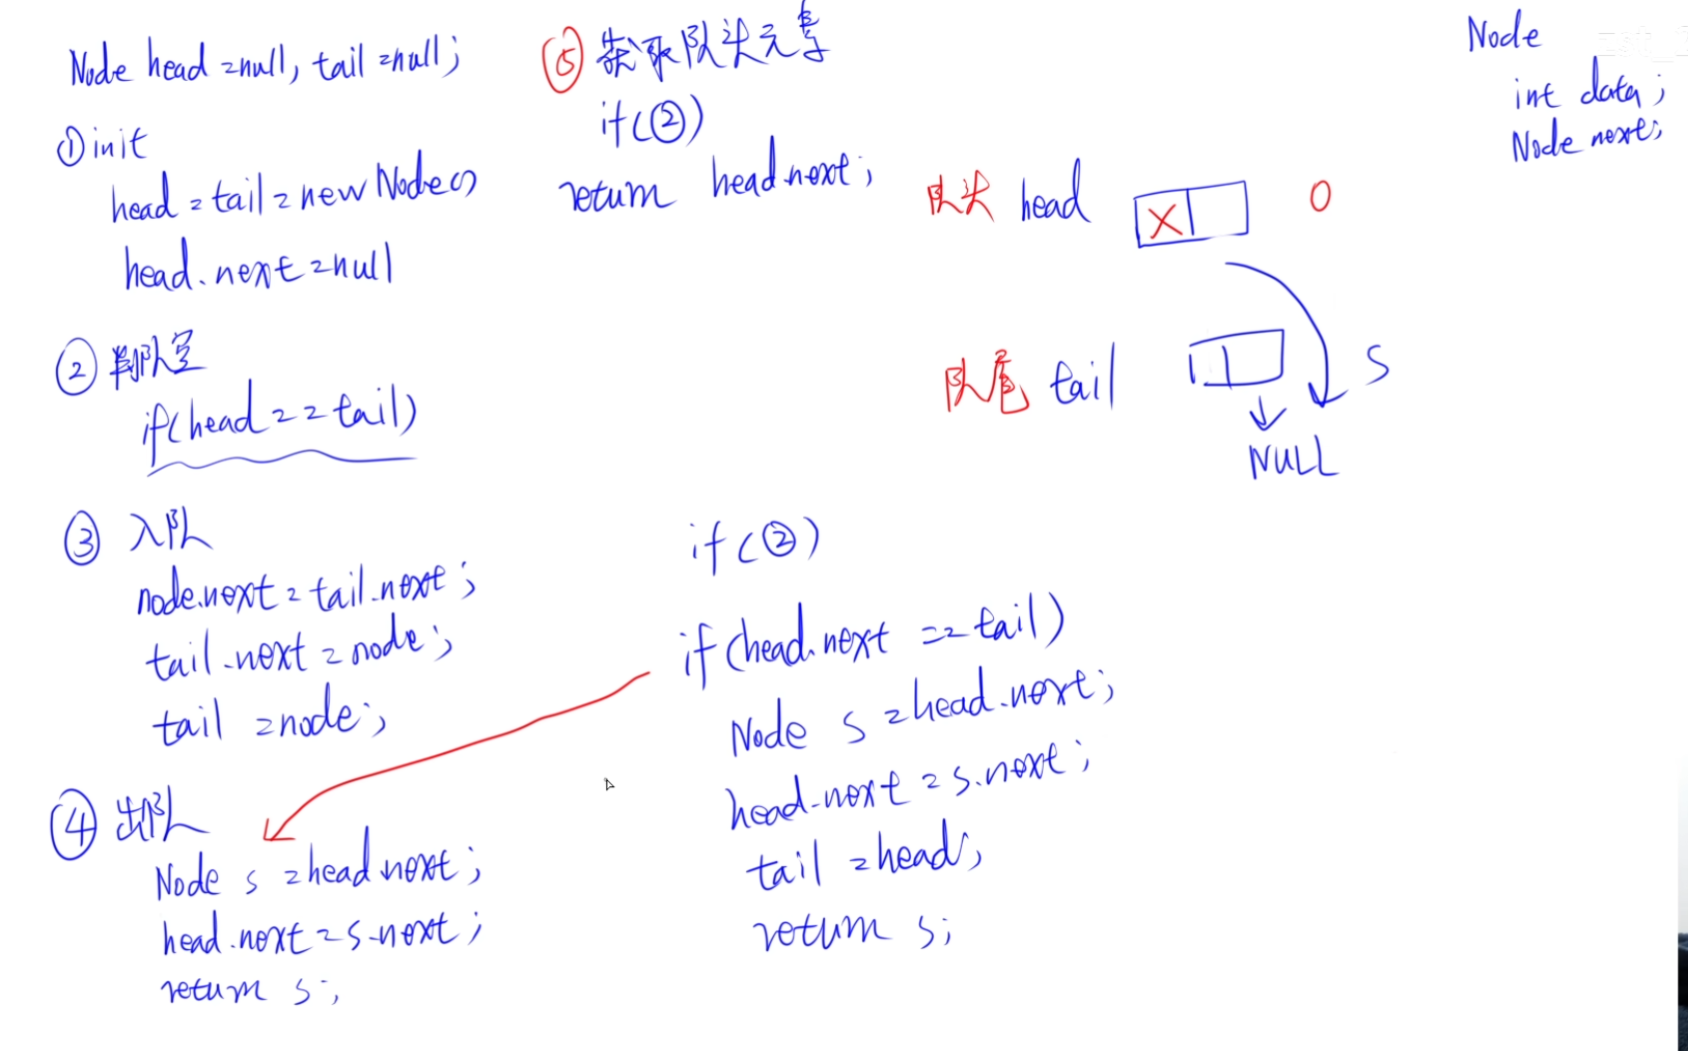 Node head = null, tail = null;
① init
head = tail = new Node()
head.next = null
② 判队空
if(head == tail)
③ 入队
node.next = tail.next;
tail.next = node;
tail = node;
④ 出队
Node s = head.next;
head.next = s.next;
return s;
⑤ 获取队头元素
if(②)
return head.next;
if(②)
if(head.next == tail)
Node s = head.next;
head.next = s.next;
tail = head;
return s;
队头 head X 0
队尾 tail S
NULL
Node
int data;
Node next;